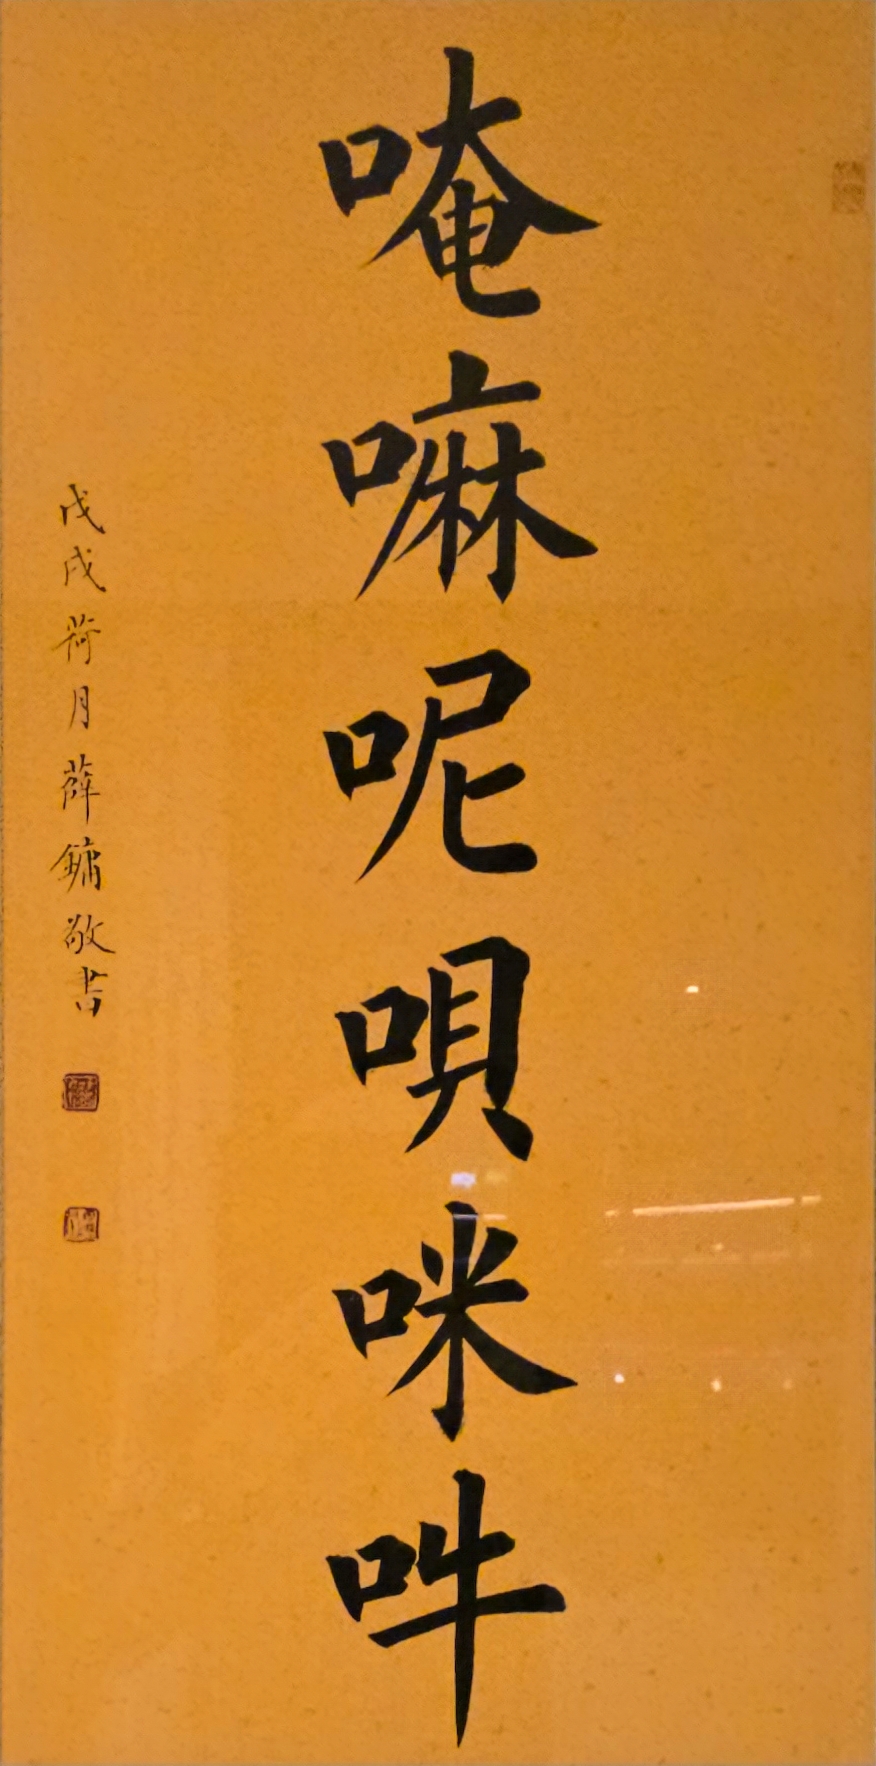 唵嘛呢唄咪吽
戊戌荷月薛鏞敬書